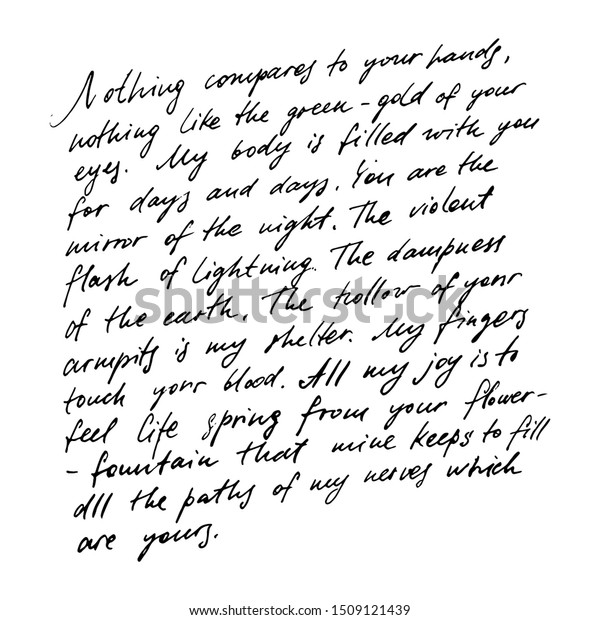 Nothing compares to your hands,
nothing like the green-gold of your
eyes. My body is filled with you
for days and days. You are the
mirror of the night. The violent
flash of lightning. The dampness
of the earth. The hollow of your
armpits is my shelter. My fingers
touch your blood. All my joy is to
feel life spring from your flower-
-fountain that mine keeps to fill
all the paths of my nerves which
are yours.
shutterstock
shutterstock.com · 1509121439